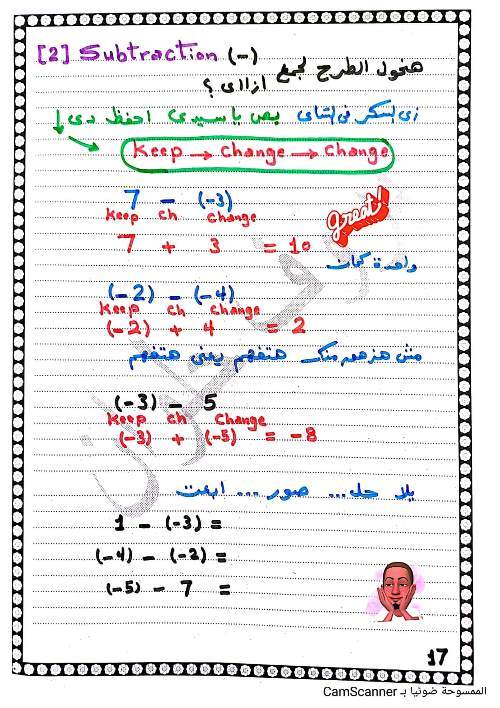 [2] Subtraction (-)
هنحول الطرح لجمع
ازاي ؟
زى السكر فى الشاى بص يا سيدى احفظ دى
Keep → Change → Change
7 - (-3)
Keep ch Change
7 + 3 = 10
Great!
واحدة كمان
(-2) - (-4)
Keep ch Change
(-2) + 4 = 2
مش هزهق منك هتفهم يعنى هتفهم
(-3) - 5
Keep ch Change
(-3) + (-5) = -8
يلا حل ... صور ... ابعت
1 - (-3) =
(-4) - (-2) =
(-5) - 7 =
17
الممسوحة ضوئيا بـ CamScanner